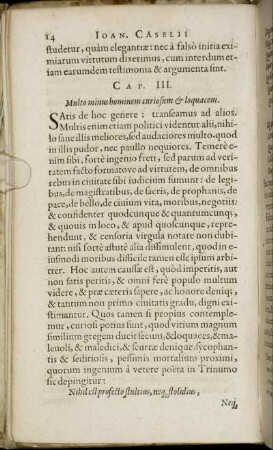 14 IOAN. CASELII
studetur, quàm elegantiæ: nec à falsò initia exi-
miarum virtutum diximus, cum interdum et-
iam earundem testimonia & argumenta sint.
CAP. III.
Multo minus hominem curiosum & loquacem.
SAtis de hoc genere: transeamus ad alios.
Multis enim etiam politici videntur alii, nihi-
lo sane illis meliores, sed audaciores multo. quod
in illis pudor, nec paullo nequiores. Temerè e-
nim sibi, fortè ingenio freti, sed parum ad veri-
tatem facto formatove ad virtutem, de omnibus
rebus in civitate sibi judicium sumunt: de legi-
bus, de magistratibus, de sacris, de prophanis, de
pace, de bello, de civium vita, moribus, negotiis:
& confidenter quodcunque & quantumcunq;,
& quovis in loco, & apud quoscunque, repre-
hendunt. & censoria virgula notare non dubi-
tant: nisi fortè astutè alia dissimulent, quod in e-
iusmodi moribus difficile tamen esse ipsum arbi-
ter. Hoc autem caussæ est, quòd imperitis, aut
non satis peritis, & omni ferè populo multum
videre, & præ cæteris sapere, ac honore deniq;,
& tantum non primo civitatis gradu, digni exi-
stimantur. Quos tamen si propius contemple-
mur, curiosi potius sunt, quod vitium magnum
similium gregem ducit secum, & loquaces, & ma-
levoli, & maledici, & scurræ denique sycophan-
tis & seditiosis, pessimis mortalium proximi,
quorum ingenium à vetere poëta in Trinumo
sic depingitur:
Nihil est profecto stultius, neq; stolidius,
Neq;